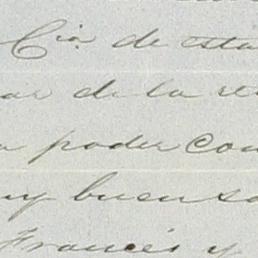 Cia de esta
de la
poder con
buen
Francés y